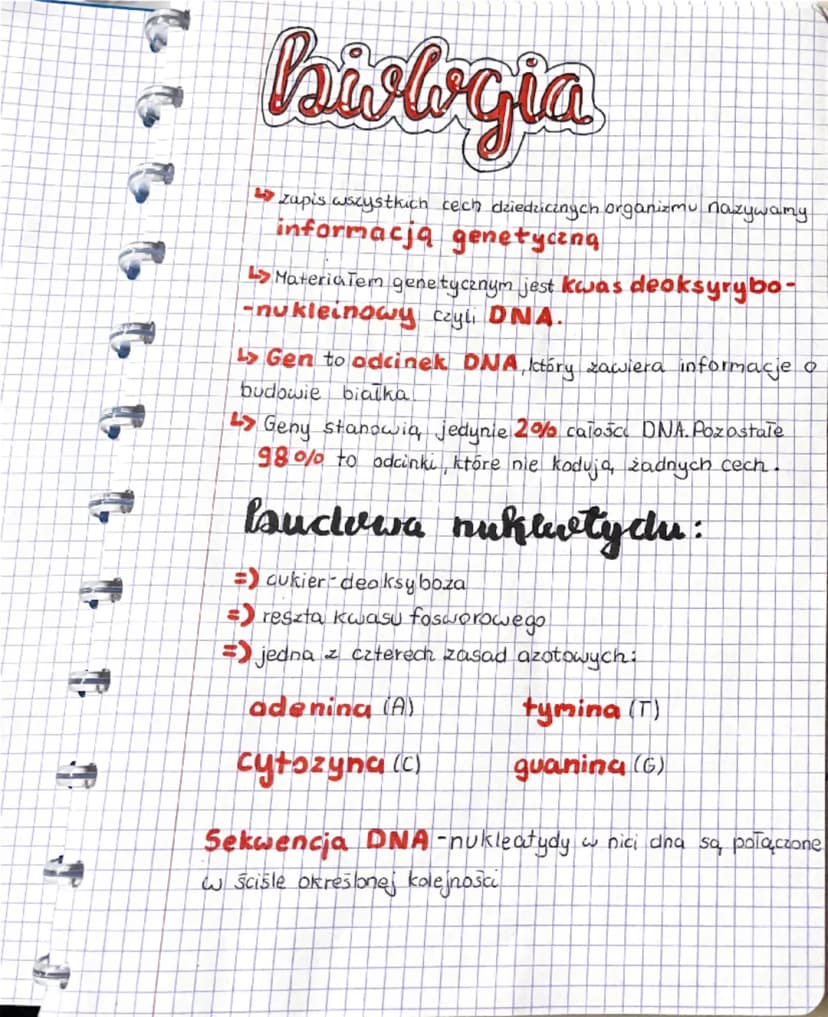 biologia
↳ zapis wszystkich cech dziedzicznych organizmu nazywamy
informacją genetyczną
↳ Materiałem genetycznym jest kwas deoksyrybo-
-nukleinowy czyli DNA.
↳ Gen to odcinek DNA, który zawiera informacje o
budowie białka.
↳ Geny stanowią jedynie 2% całości DNA. Pozostałe
98% to odcinki, które nie kodują żadnych cech.
budowa nukleotydu:
=) cukier-deoksyboza
=) reszta kwasu fosworowego
=) jedna z czterech zasad azotowych:
adenina (A) tymina (T)
cytozyna (C) guanina (G)
Sekwencja DNA - nukleatydy w nici dna są połączone
w ściśle określonej kolejności